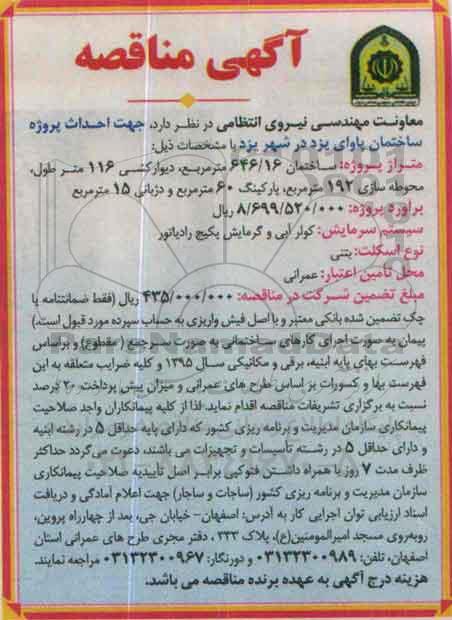 آگهی مناقصه
معاونت مهندسی نیروی انتظامی در نظر دارد، جهت احداث پروژه
ساختمان پاوای یزد در شهر یزد با مشخصات ذیل:
متراژ پروژه: ساختمان ۶۴۶/۱۶ مترمربع، دیوارکشی ۱۱۶ متر طول،
محوطه سازی ۱۹۲ مترمربع، پارکینگ ۶۰ مترمربع و دژبانی ۱۵ مترمربع
براورد پروژه: ۸/۶۹۹/۵۲۰/۰۰۰ ریال
سیستم سرمایش: کولر آبی و گرمایش پکیج رادیاتور
نوع اسکلت: بتنی
محل تأمین اعتبار: عمرانی
مبلغ تضمین شرکت در مناقصه: ۴۳۵/۰۰۰/۰۰۰ ریال (فقط ضمانتنامه یا
چک تضمین شده بانکی معتبر و یا اصل فیش واریزی به حساب سپرده مورد قبول است.)
پیمان به صورت اجرای کارهای ساختمانی به صورت سرجمع (مقطوع) و براساس
فهرست بهای پایه ابنیه، برقی و مکانیکی سال ۱۳۹۵ و کلیه ضرایب متعلقه به این
فهرست بها و کسورات بر اساس طرح های عمرانی و میزان پیش پرداخت ۲۰ درصد
نسبت به برگزاری تشریفات مناقصه اقدام نماید. لذا از کلیه پیمانکاران واجد صلاحیت
پیمانکاری سازمان مدیریت و برنامه ریزی کشور که دارای پایه حداقل ۵ در رشته ابنیه
و دارای حداقل ۵ در رشته تأسیسات و تجهیزات می باشند، دعوت می‌گردد حداکثر
ظرف مدت ۷ روز با همراه داشتن فتوکپی برابر اصل تأییدیه صلاحیت پیمانکاری
سازمان مدیریت و برنامه ریزی کشور (ساجات و ساجار) جهت اعلام آمادگی و دریافت
اسناد ارزیابی توان اجرایی کار به آدرس: اصفهان- خیابان جی، بعد از چهارراه پروین،
روبه‌روی مسجد امیرالمومنین(ع)، پلاک ۳۳۳، دفتر مجری طرح های عمرانی استان
اصفهان، تلفن: ۰۳۱۳۲۳۰۰۹۸۹ و دورنگار: ۰۳۱۳۲۳۰۰۹۶۷ مراجعه نمایند.
هزینه درج آگهی به عهده برنده مناقصه می باشد.